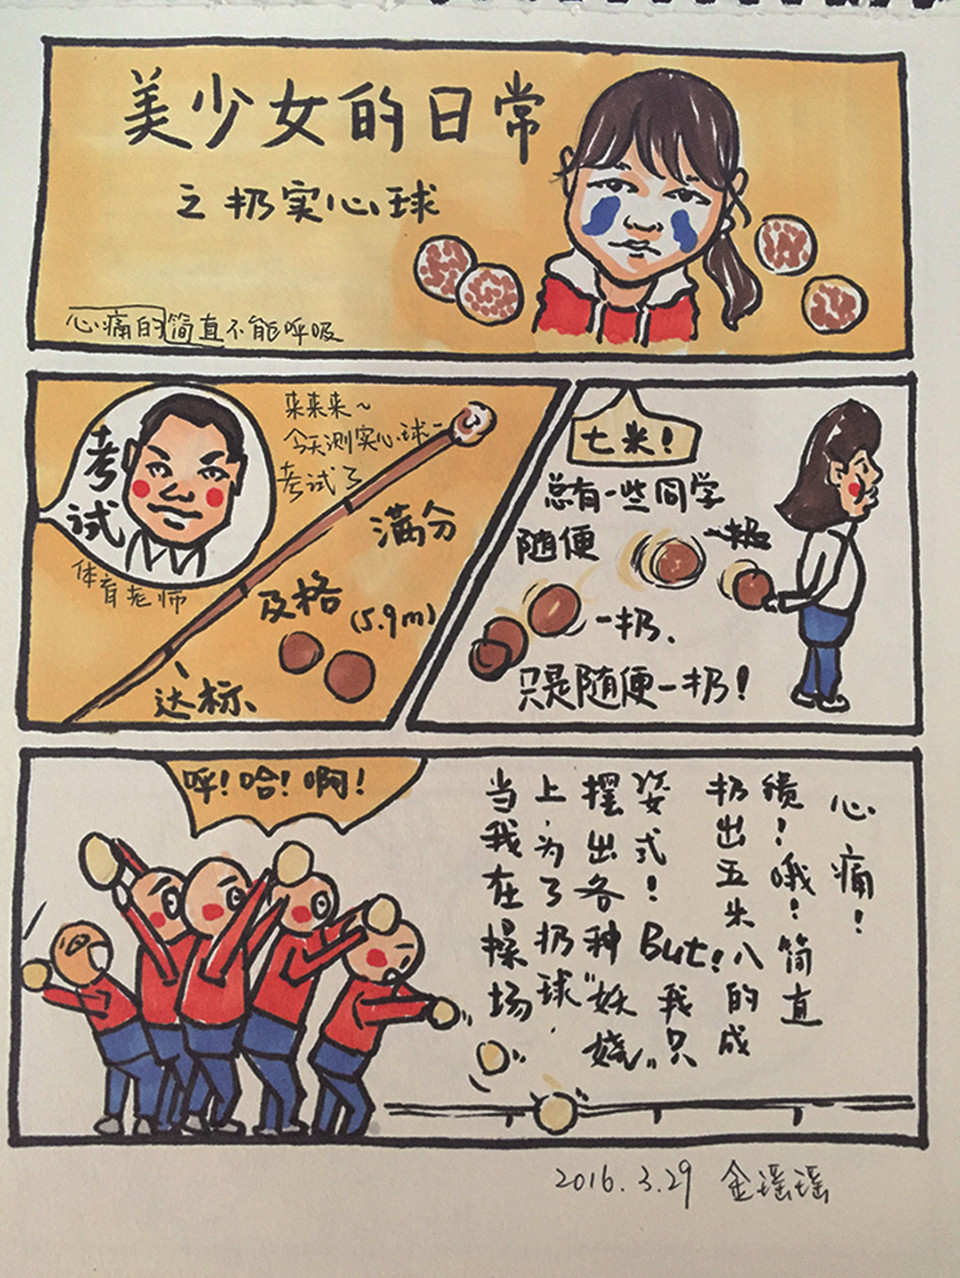 美少女的日常
之扔实心球
心痛的简直不能呼吸
考试
体育老师
来来来~
今天测实心球~
考试了
满分
及格
(5.9m)
达标
七米！
总有一些同学
随便
一扔、
只是随便一扔！
呼！哈！啊！
当我在操场
上，为了扔球，
摆出各种“妖娆”
姿式！But！我只
扔出五米八的成
绩！哦！简直
心痛！
2016.3.29 金瑶瑶